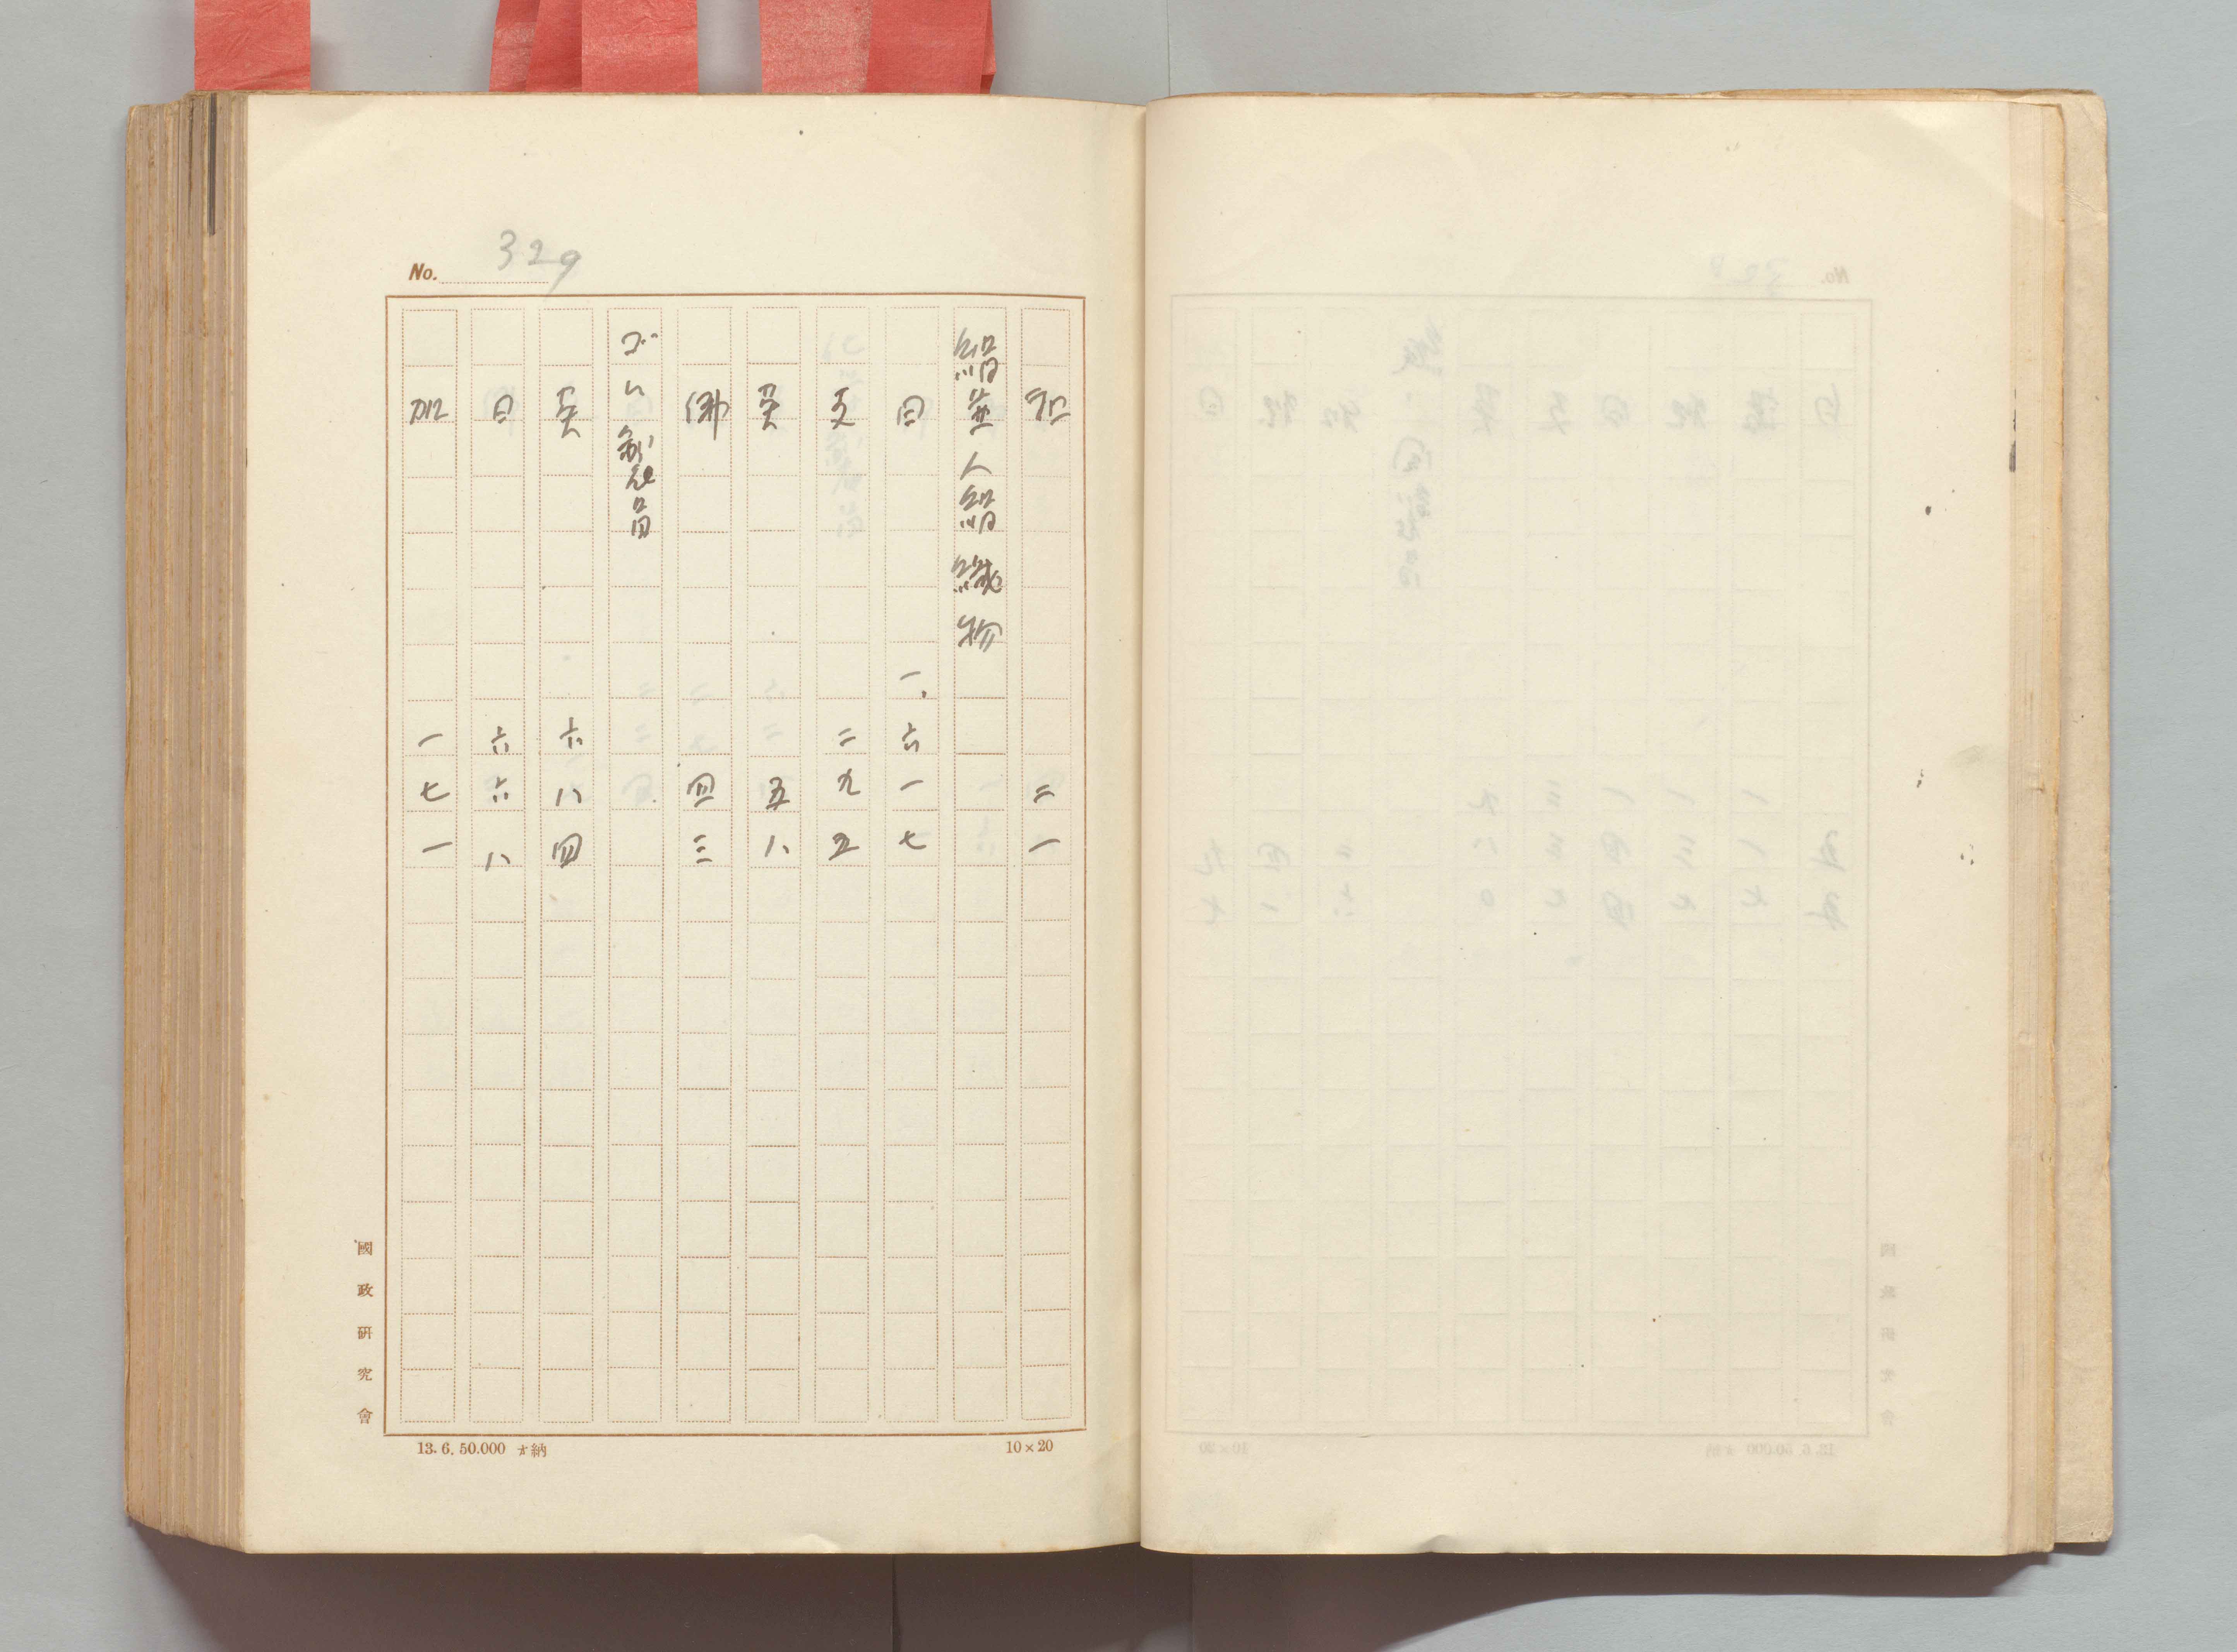 No. 329
二一
絹並人絹織物
日 一、六一七
支 二九五
英 五八
佛 四三
ゴム製品
英 六八四
日 六六八
加 一七一
國政研究會
13.6.50.000 納
10×20